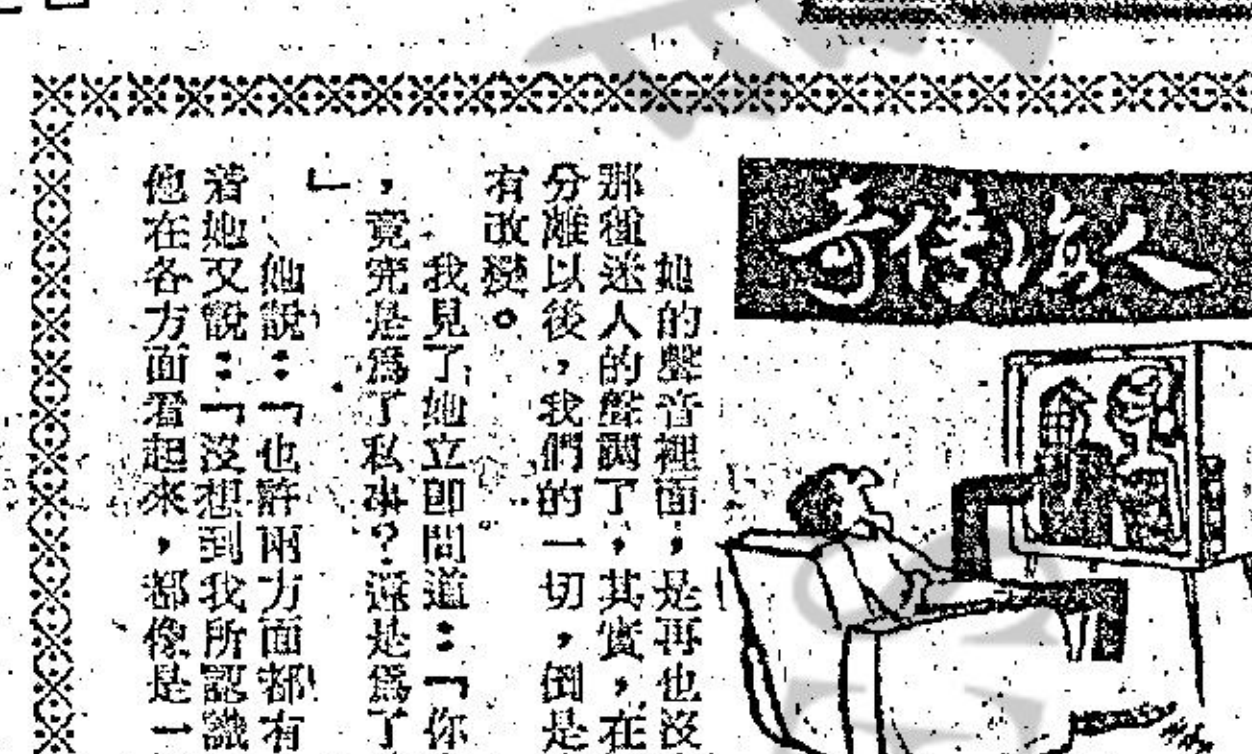 人海傳奇
她的聲音裡面，是再也沒
那種迷人的聲調了，其實，在
分離以後，我們的一切，倒是
有改變。
我見了她立卽問道：「你
，竟究是爲了私事？還是爲了
」
他說：「也許兩方面都有
着她又說：「沒想到我所認識
他在各方面看起來，都像是一